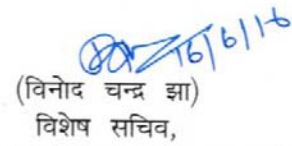 16/6/16
(विनोद चन्द्र झा)
विशेष सचिव,